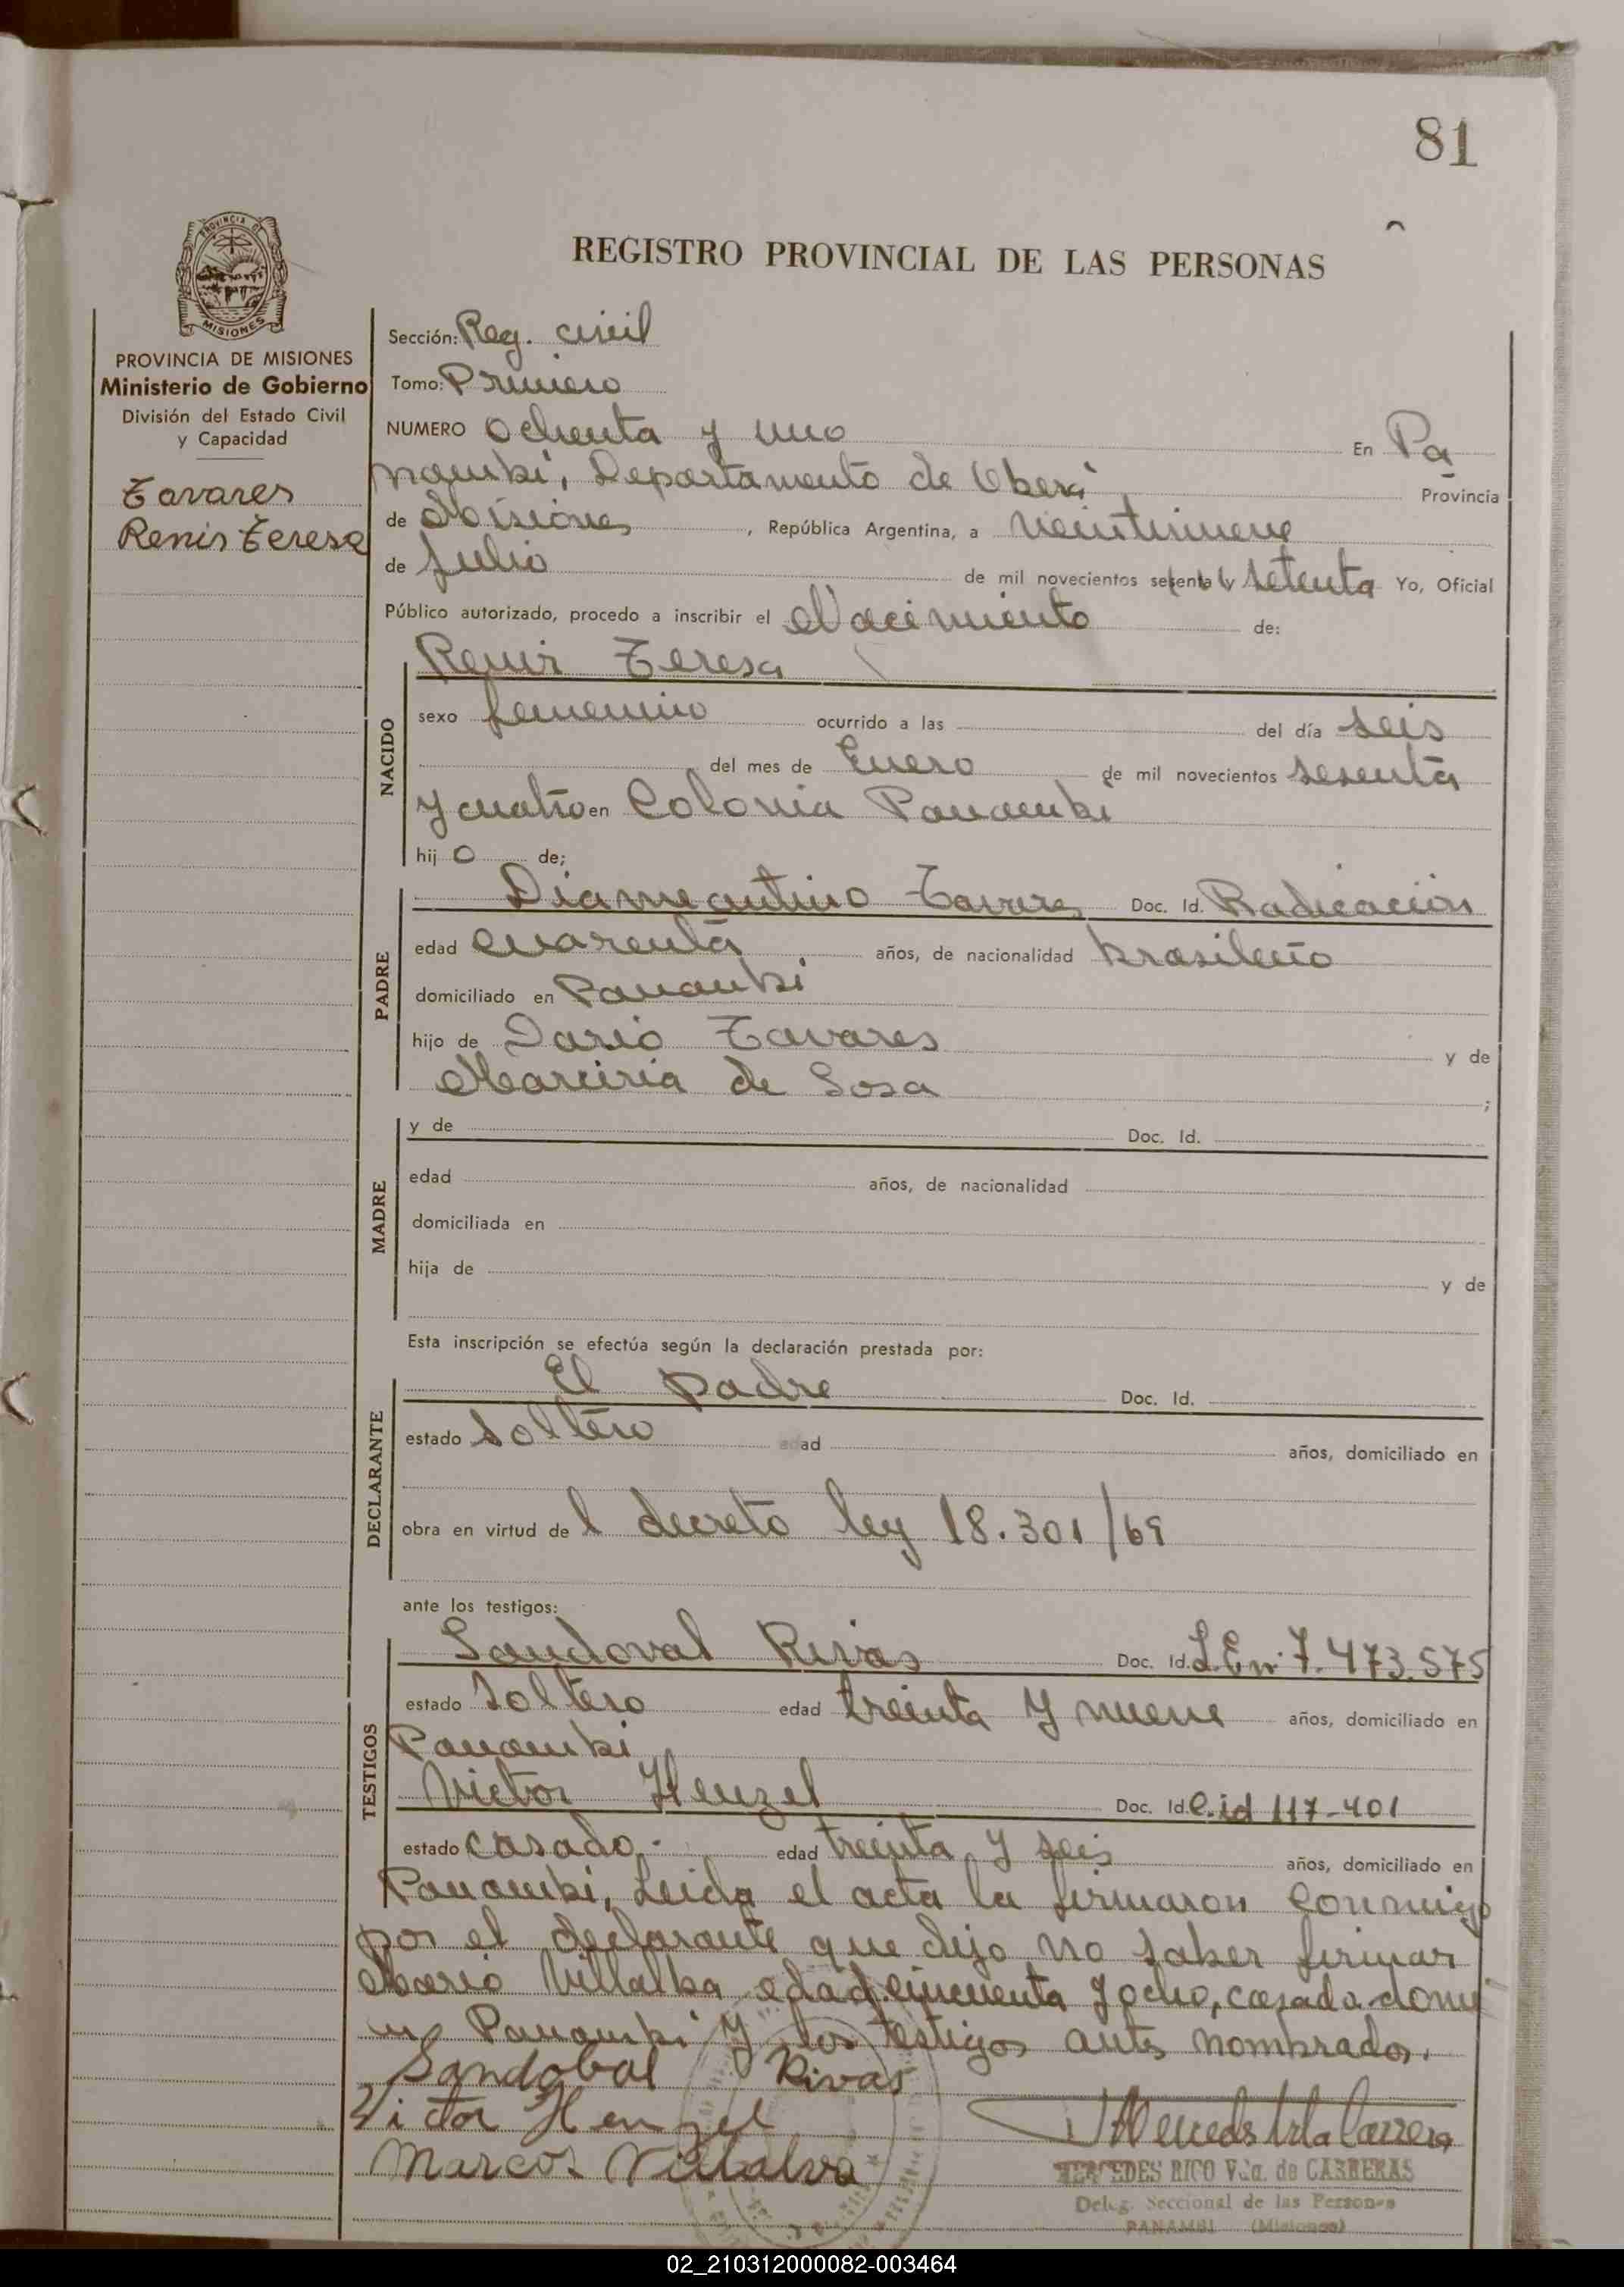 81
PROVINCIA DE
MISIONES
REGISTRO PROVINCIAL DE LAS PERSONAS
PROVINCIA DE MISIONES
Ministerio de Gobierno
División del Estado Civil
y Capacidad
Tavares
Renis Teresa
Sección: Reg. civil
Tomo: Primero
NUMERO Ochenta y uno En Pa
nambí, Departamento de Oberá Provincia
de Misiones, República Argentina, a veintinueve
de Julio de mil novecientos sesenta y setenta Yo, Oficial
Público autorizado, procedo a inscribir el Nacimiento de:
Renis Teresa
NACIDO
sexo femenino ocurrido a las del día seis
del mes de Enero de mil novecientos sesenta
y cuatro en Colonia Panambí
hij o de;
PADRE
Diamantino Tavares Doc. Id. Radicación
edad cuarenta años, de nacionalidad brasileño
domiciliado en Panambí
hijo de Dario Tavares y de
de Sosa ;
MADRE
y de Doc. Id.
edad años, de nacionalidad
domiciliada en
hija de y de
Esta inscripción se efectúa según la declaración prestada por:
DECLARANTE
El padre Doc. Id.
estado soltero edad años, domiciliado en
obra en virtud de l decreto ley 18.301/69
ante los testigos:
TESTIGOS
Sandoval Rivas Doc. Id. L.E.nº 7.473.575
estado soltero edad treinta y nueve años, domiciliado en
Panambí
Victor Henzel Doc. Id. C.id 117-401
estado casado. edad treinta y seis años, domiciliado en
Panambí, Leida el acta la firmaron conmigo
por el declarante que dijo no saber firmar
Villalba edad cincuenta y ocho, casado domi
en Panambí y los testigos antes nombrados.
Sandobal Rivas
Victor Henzel
Marcos Villalva
MERCEDES RICO Vda. de CARRERAS
Deleg. Seccional de las Personas
PANAMBI (Misiones)
02_210312000082-003464